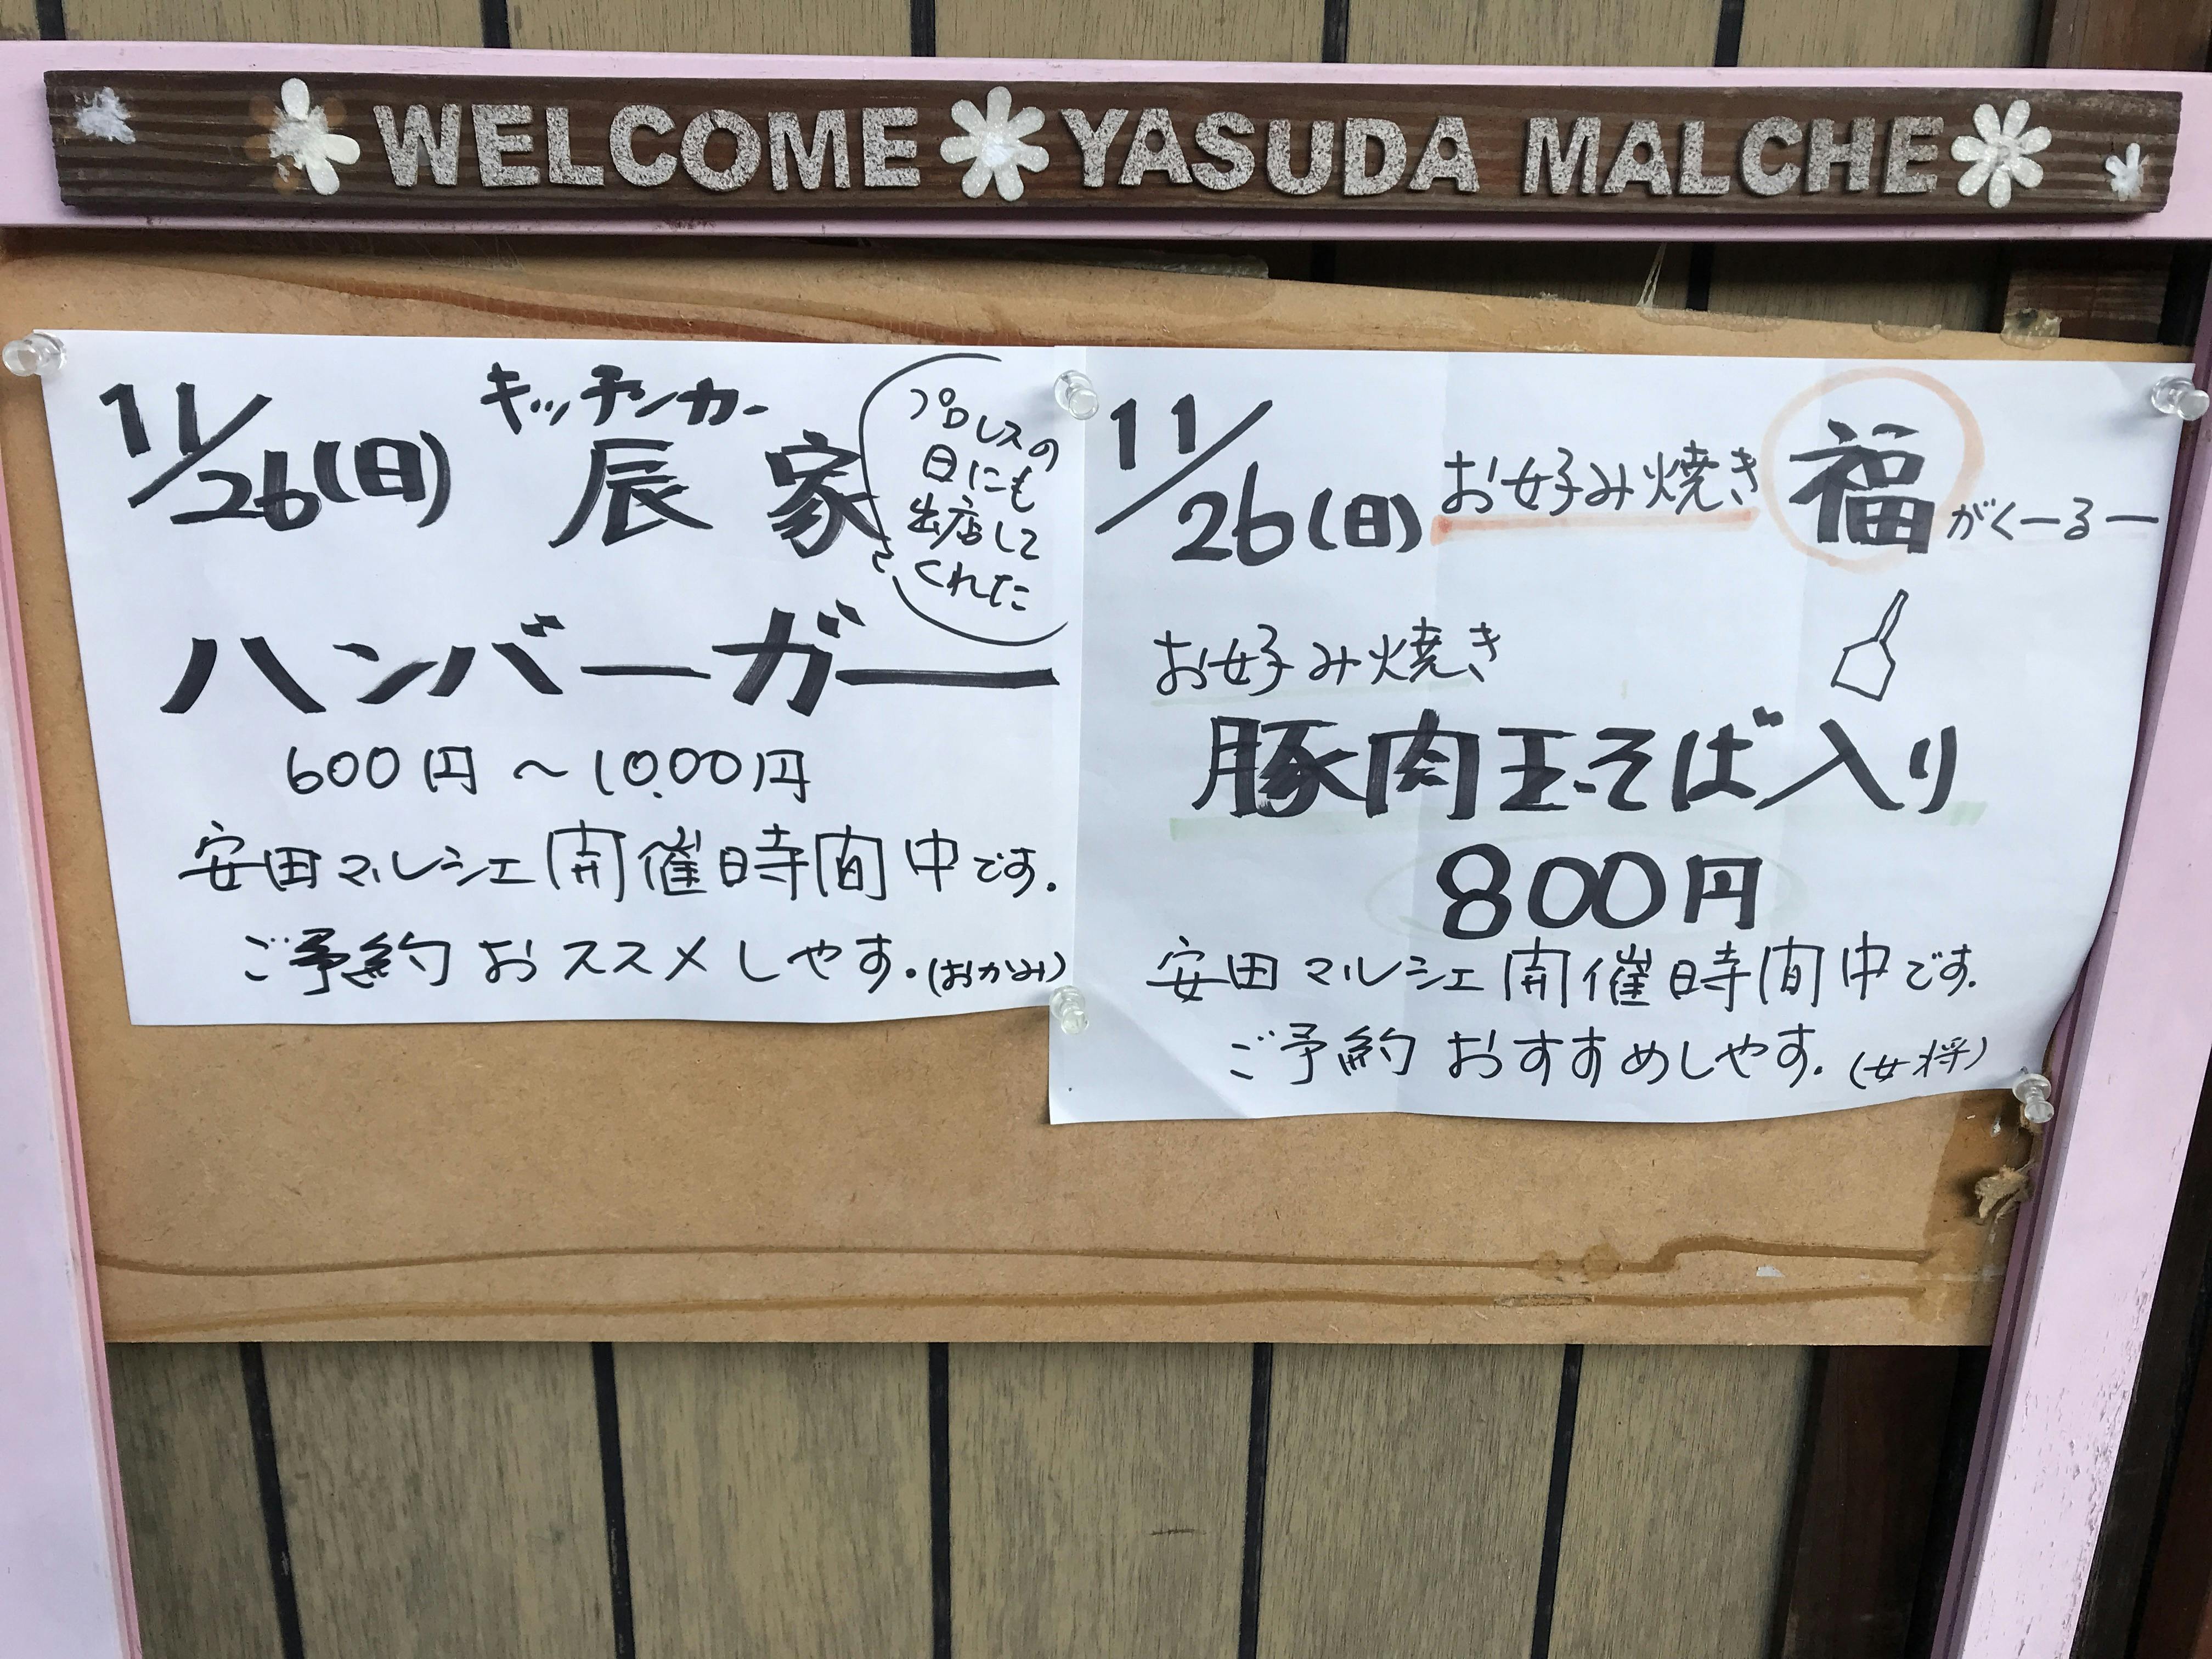 WELCOME YASUDA MALCHE
11/26(日)
キッチンカー
辰家
プロレスの
日にも
出店して
くれた
ハンバーガー
600円～1000円
安田マルシェ開催時間中です.
ご予約おススメしやす.(おかみ)
11/26(日) お好み焼き 福がくーるー
お好み焼き
豚肉玉そば入り
800円
安田マルシェ開催時間中です.
ご予約おすすめしやす.(女将)